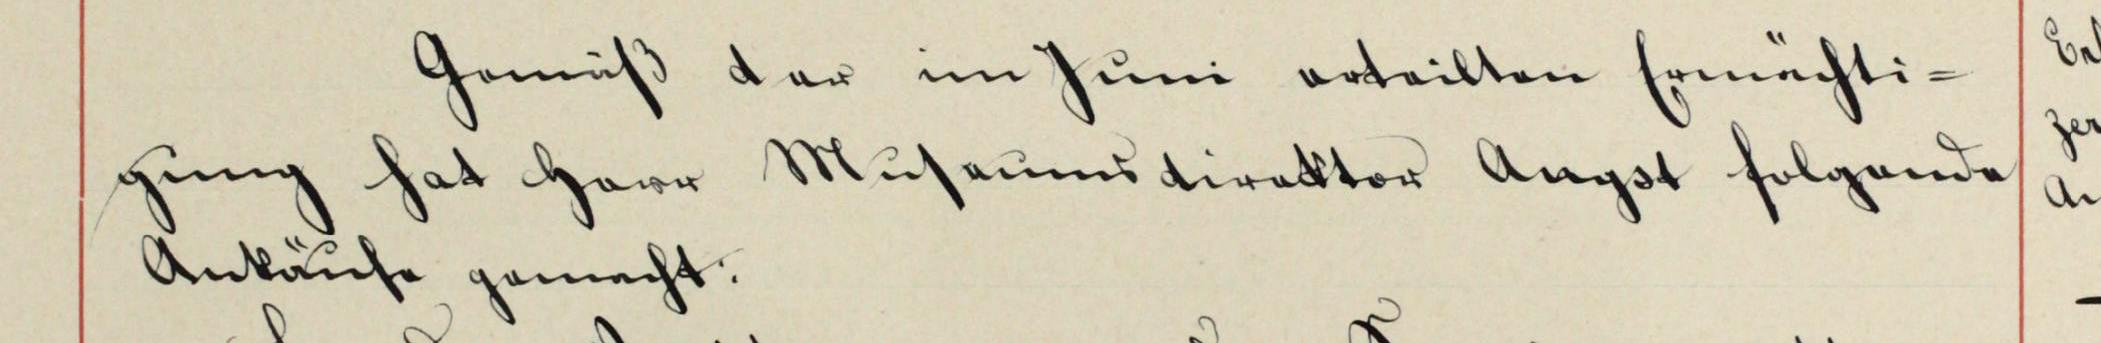 Gemäß der im Juni erteilten Ermächti=
gung hat Herr Museumsdirektor Angst folgende
Ankäufe gemacht: